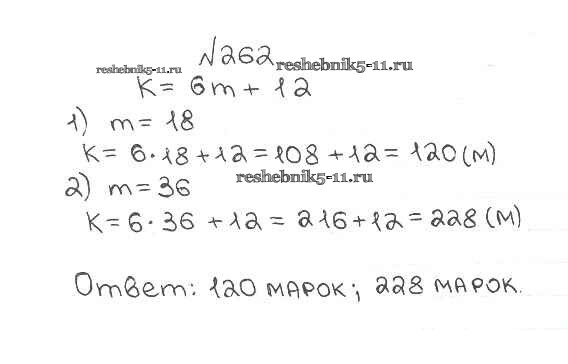 №262
reshebnik5-11.ru
reshebnik5-11.ru
K = 6m + 12
1) m = 18
K = 6·18 + 12 = 108 + 12 = 120 (м)
reshebnik5-11.ru
2) m = 36
K = 6·36 + 12 = 216 + 12 = 228 (м)
Ответ: 120 марок; 228 марок.